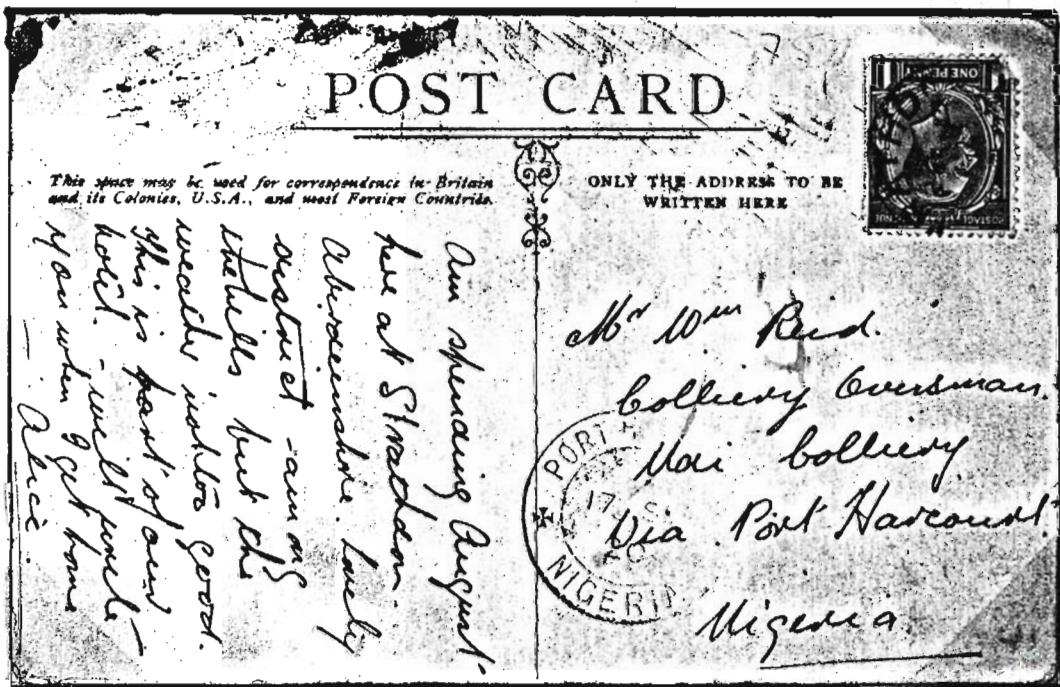 POST CARD
This space may be used for correspondence in Britain
and its Colonies, U.S.A., and most Foreign Countries.
ONLY THE ADDRESS TO BE
WRITTEN HERE
ONE PENNY
Am spending August
here at Strathdon.
Aberdeenshire. Lovely
district - among
the hills but the
weather not too good.
This is part of our
hotel. - will write
you when I get home
- Alice.
Mr Wm Reid.
Colliery Oversman.
Udi Colliery
Via Port Harcourt
Nigeria.
PORT
17
NIGERIA